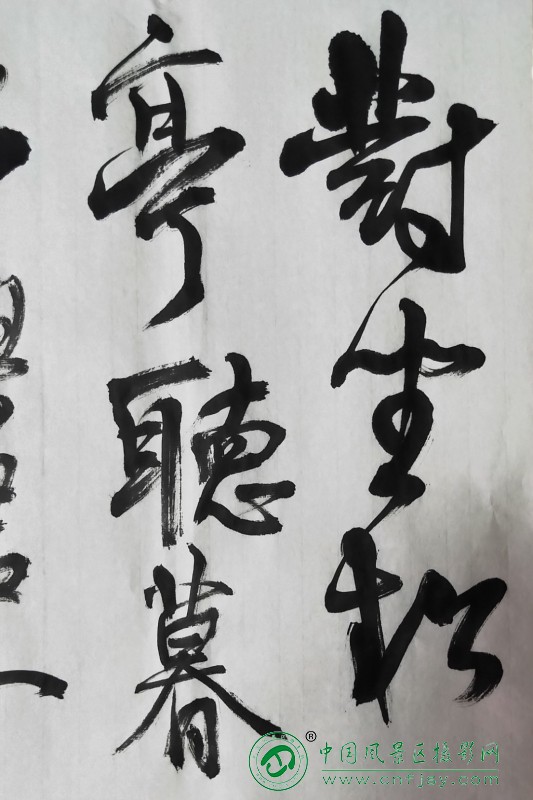 對坐松
亭聽暮
中国风景区摄影网
www.cnfjqy.com
®